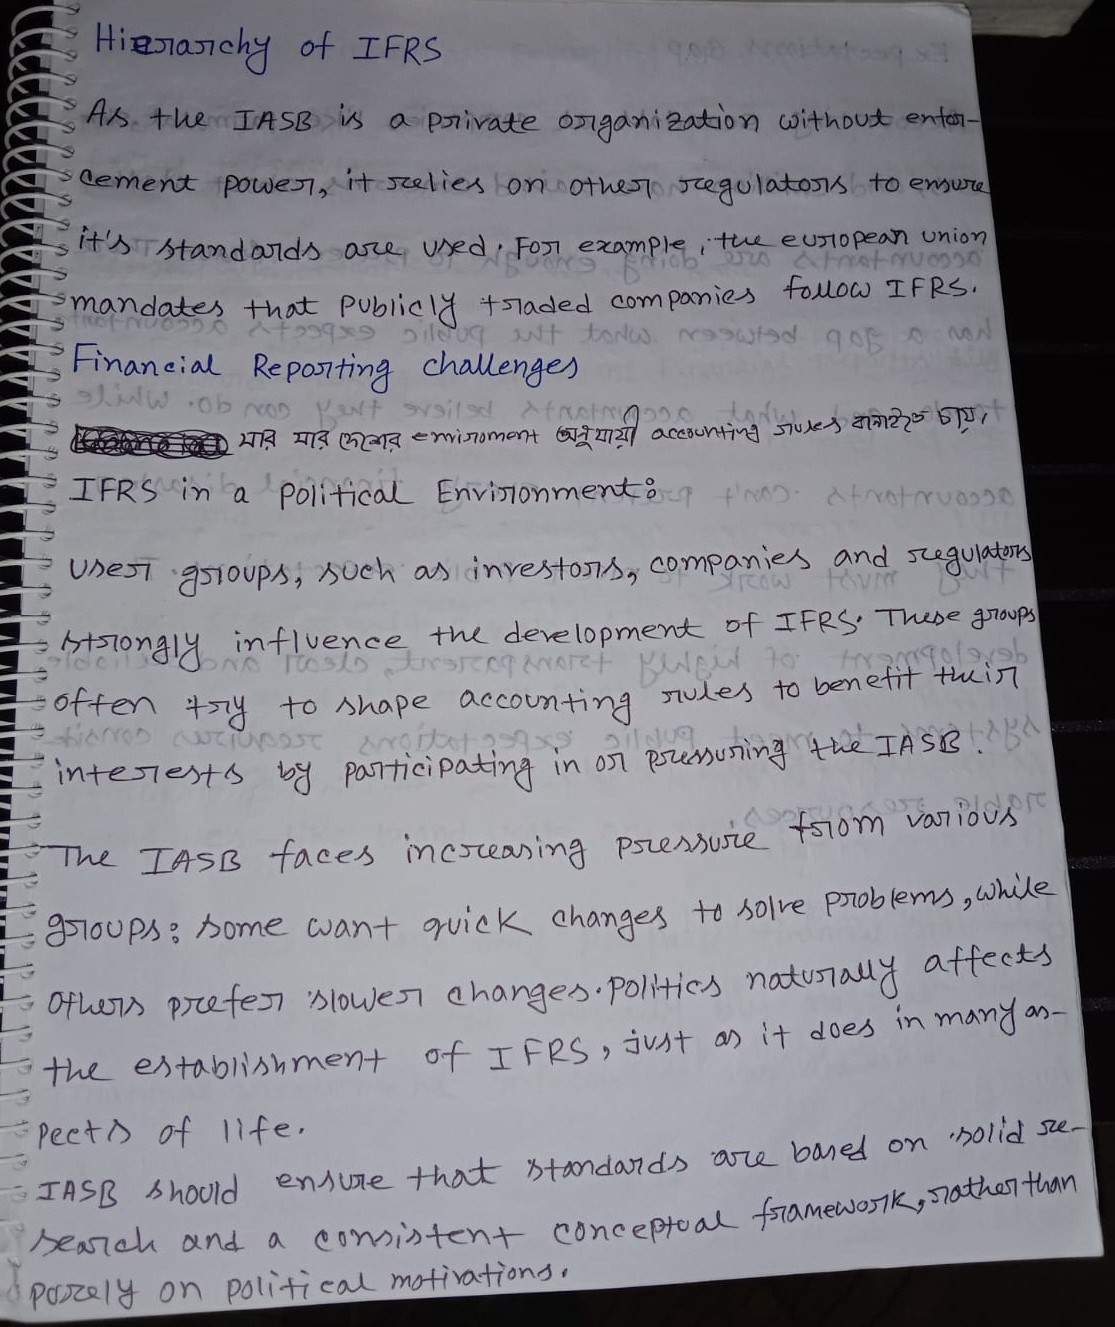 Hierarchy of IFRS
As the IASB is a private organization without enfor-
cement power, it relies on other regulators to ensure
it's standards are used. For example, the european union
mandates that publicly traded companies follow IFRS.
Financial Reporting challenges
যার যার দেশের environment অনুযায়ী accounting rules বানাইতে চায়।
IFRS in a Political Environment:
User groups, such as investors, companies and regulators
strongly influence the development of IFRS. These groups
often try to shape accounting rules to benefit their
interests by participating in or pressuring the IASB.
The IASB faces increasing pressure from various
groups: some want quick changes to solve problems, while
others prefer slower changes. Politics naturally affects
the establishment of IFRS, just as it does in many as-
pects of life.
IASB should ensure that standards are based on solid re-
search and a consistent conceptual framework, rather than
purely on political motivations.